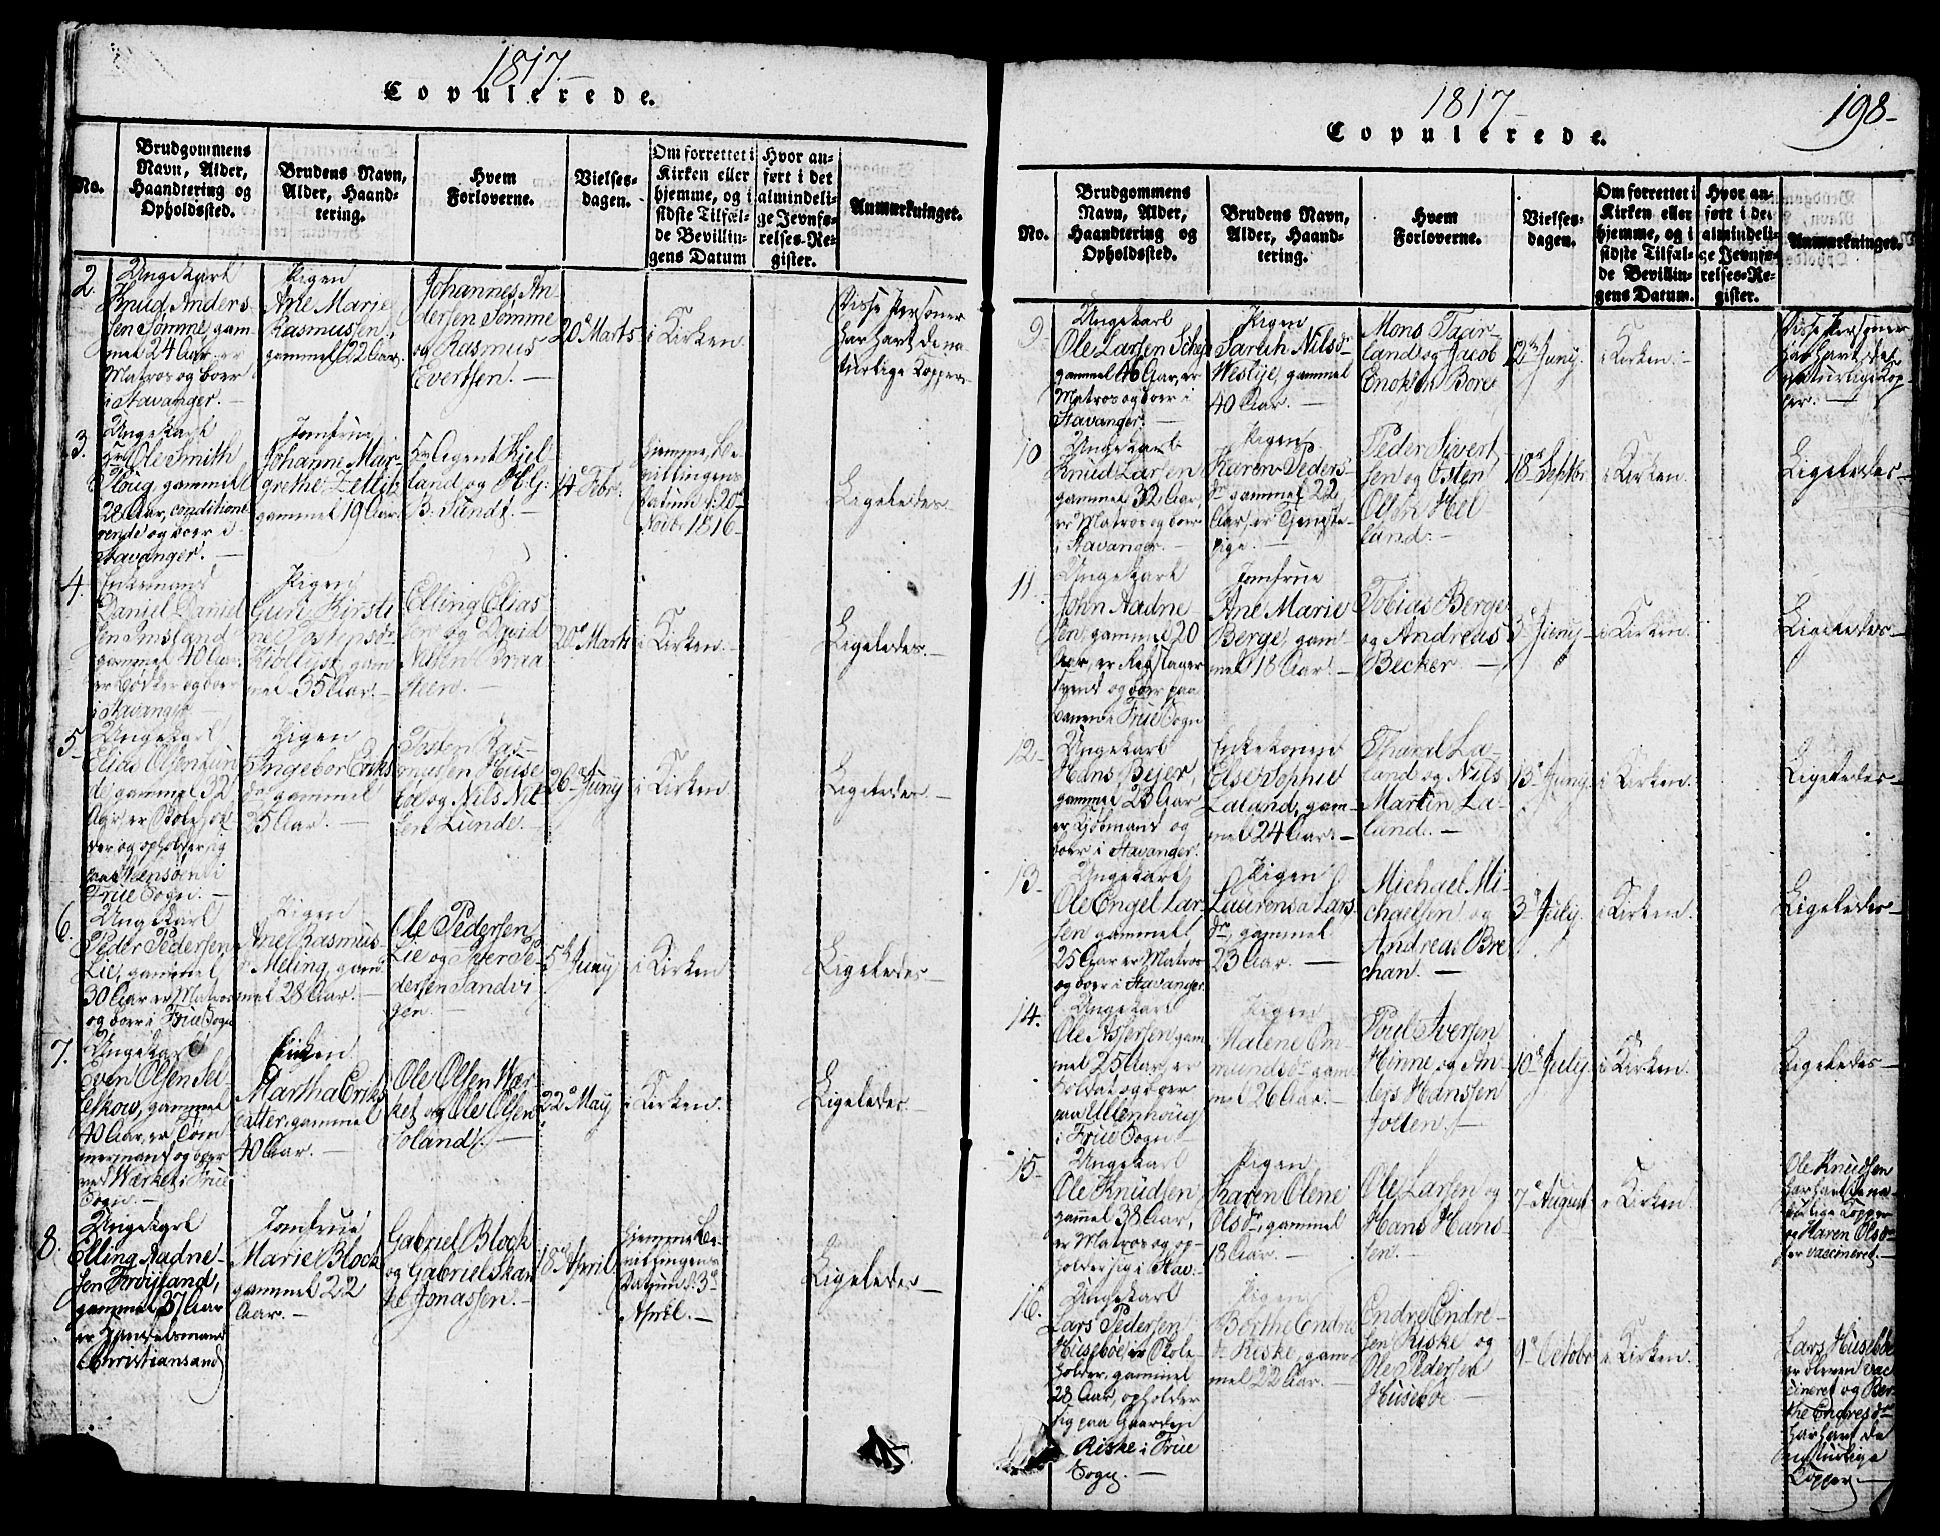 1817.-
Copulerede.
No.
Brudgommens
Navn, Alder,
Haandtering og
Opholdssted.
Brudens Navn,
Alder, Haand-
tering.
Hvem
Forloverne.
Vielses-
dagen.
Om forrettet i
Kirken eller
hjemme, og i
sidste Tilfæl-
de Bevillin-
gens Datum
Hvor an-
ført i det
almindeli-
ge Jevnfø-
relses-Re-
gister.
Anmærkninger.
2.
Ungekarl
Knud Anders-
sen Somme, gam-
mel 24 Aar, er
Matros og boer
i Stavanger.-
Pigen
Ane Marie
Rasmussen,
gammel 22 Aar.
Johannes An-
dersen Somme
og Rasmus
Evertsen.-
20de Marts
i Kirken
Disse Personer
har havt de na-
turlige Kopper
3.
Ungekarl
Hr Ole Smith
Ploug gammel
28 Aar, conditione-
rende og boer i
Stavanger.-
Jomfrue
Johanne Mar-
grethe Zetlitz
gammel 19 Aar
Hr Agent Kiel-
land og
B: Sundt.-
14de Febr.
hjemme, Be-
villingens
Datum d: 20de
Novbr 1816-
Ligeledes-
4.
Enkemand
Daniel Daniel-
sen Imsland
gammel 40 Aar,
er Bødker og boer
i Stavanger
Pigen
Guri Kirsti-
ne Tostensdr
gam-
mel 35 Aar.-
Elling Elias-
sen og David
Nilsen Braa-
steen.-
20de Marts
i Kirken.
Ligeledes.-
5.
Ungekarl
Elias Olsen Lun-
de, gammel 32
Aar, er Skolehol-
der og opholder sig
paa i
Frue Sogn.-
Pigen
Ingebor Eriks-
dr gammel
25 Aar.-
Tosten Ras-
musen Huse-
bøe og Nils Nil-
sen Lunde.-
26de Juny
i Kirken
Ligeledes.-
6.
Ungekarl
Peder Pedersen
Lie, gammel
30 Aar er Matros
og boer i Frue Sogn
Pigen
Ane Rasmus-
dr Meling, gam-
mel 28 Aar.-
Ole Pedersen
Lie og Iver Pe-
dersen Sandvi-
gen.-
5te Juny
i Kirken
Ligeledes-
7.
Ungekarl
Even Olsen Sel-
leskow, gammel
40 Aar, er Tøm-
mermand og boer
ved Wærket i Frue
Sogn.-
Pigen
Martha Eriks-
datter, gammel
40 Aar.-
Ole Olsen Wær-
ket og Ole Olsen
Soland.-
22de May
i Kirken.
Ligeledes.-
8.
Ungekarl
Elling Aadne-
sen Frøyland,
gammel 37 Aar
er Handelsmand
i Christiansand
Jomfrue
Marie Block
gammel 22
Aar.-
Gabriel Block
og Gabriel Skan-
ke Jonassen.-
18de April.
hjemme Be-
villingens
Datum d: 3de
April.-
Ligeledes-
1817.-
198-
Copulerede.
No.
Brudgommens
Navn, Alder,
Haandtering og
Opholdssted.
Brudens Navn,
Alder, Haand-
tering.
Hvem
Forloverne.
Vielses-
dagen.
Om forrettet i
Kirken eller
hjemme, og i
sidste Tilfæl-
de Bevillin-
gens Datum.
Hvor an-
ført i det
almindeli-
ge Jevnfø-
relses-Re-
gister.
Anmærkninger.
9.
Ungekarl
Ole Larsen
gammel 40 Aar, er
Matros og boer i
Stavanger.-
Pigen
Sarah Nilsdr
Weslye, gammel
40 Aar.-
Mons Taar-
land og Jacob
Enoksen Bore
12te Juny.
i Kirken.-
Disse Personer
har havt de
naturlige Kop-
per.-
10
Ungekarl
Knud Larsen
gammel 32 Aar,
er Matros og boer
i Stavanger.-
Pigen
Karen Peders-
dr gammel 22
Aar, er Tjeneste-
pige.-
Peder Sivert-
sen og Osten
Olsen Hel-
land.-
18de Septbr.
i Kirken.
Ligeledes-
11.
Ungekarl
John Aadne-
sen, gammel 20
Aar, er Rebslager-
svend og boer paa
i Frue Sogn
Jomfrue
Ane Marie
Berge, gam-
mel 18 Aar.-
Tobias Berge
og Andreas
Becker.-
3de Juny-
i Kirken.
Ligeledes-
12-
Ungekarl
Hans Bejer,
gammel 23 Aar
er Sjømand og
boer i Stavanger.
Enkekonen
Else Sophie
Laland, gam-
mel 24 Aar.-
La-
land og Nils
Martin La-
land.-
13de Juny.
i Kirken.
Ligeledes-
13-
Ungekarl
Ole Engel Lar-
sen gammel
25 Aar er Matros
og boer i Stavanger.
Pigen
Laurensa Lars-
dr, gammel
23 Aar.-
Michael Mi-
chaelsen og
Andreas Bre-
chan.-
3de July.
i Kirken.
Ligeledes-
14.
Ungekarl
Ole Assersen gam-
mel 25 Aar, er
Soldat og boer
paa Ullenhoug
i Frue Sogn-
Pigen
Malene Om-
mundsdr gam-
mel 26 Aar.-
Poul Iversen
Hinne og An-
ders Hanssen
Jotten.-
10de July.
i Kirken.
Ligeledes-
15-
Ungekarl
Ole Knudsen,
gammel 38 Aar,
er Matros og op-
holder sig i Stav.
Pigen
Karen Olene
Olsdr, gammel
18 Aar.-
Ole Larsen og
Hans Hans-
sen.-
7de August
i Kirken
Ole Knudsen
har havt de na-
turlige Kopper
og Karen Olsdr
er vaccineret.-
16.
Ungekarl
Lars Pedersen
Husebøe, er Skole-
holder, gammel
28 Aar, opholder
sig paa Gaarden
Riske i Frue
Sogn.-
Pigen
Berthe Endres-
dr Riske, gam-
mel 22 Aar.-
Endre Endre-
sen Riske og
Ole Pedersen
Husebøe-
9de Octobr
i Kirken.
Lars Husebøe
er bleven vac-
cineret og Ber-
the Endresdr
har havt de
naturlige
Kopper.-